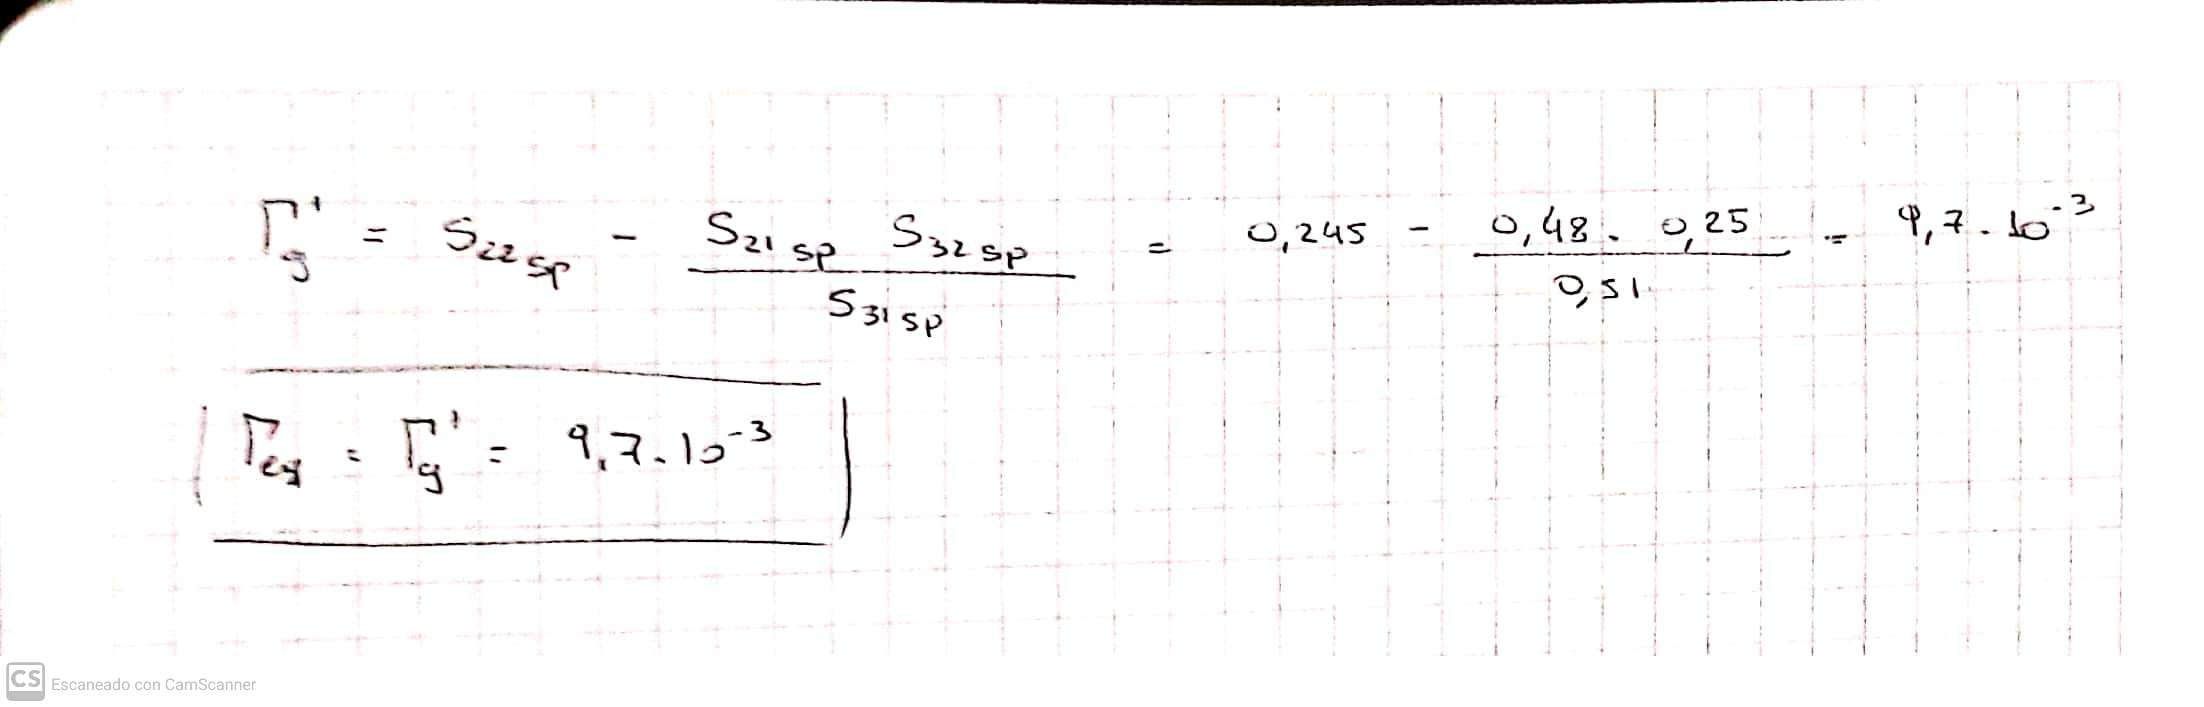 Γg' = S22 sp - S21 sp S32 sp / S31 sp = 0,245 - 0,48 . 0,25 / 0,51 = 9,7 . 10^-3
Γeg = Γg' = 9,7 . 10^-3
CS Escaneado con CamScanner